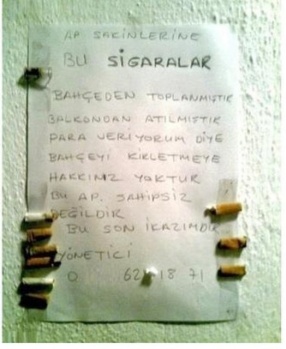 AP SAKİNLERİNE
BU SİGARALAR
BAHÇEDEN TOPLANMIŞTIR
BALKONDAN ATILMIŞTIR
PARA VERİYORUM DİYE
BAHÇEYİ KİRLETMEYE
HAKKINIZ YOKTUR
BU AP. SAHİPSİZ
DEĞİLDİR
BU SON İKAZIMDIR
YÖNETİCİ
0 62 18 71